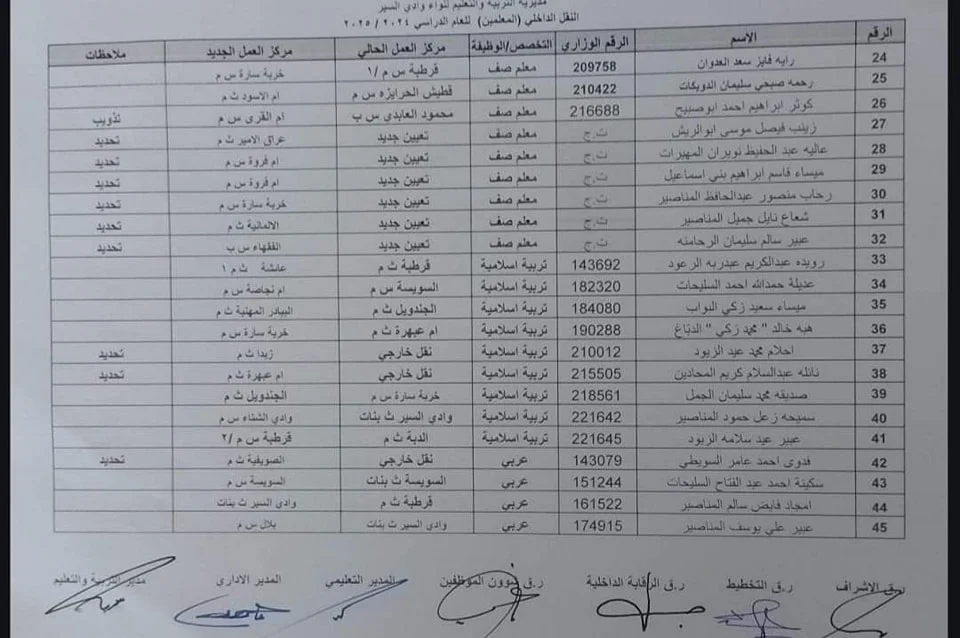 مديرية التربية والتعليم للواء وادي السير
النقل الداخلي (المعلمين) للعام الدراسي ٢٠٢٤ / ٢٠٢٥
الرقم الاسم الرقم الوزاري التخصص/الوظيفة مركز العمل الحالي مركز العمل الجديد ملاحظات
24 رايه فايز سعد العدوان 209758 معلم صف قرطبة س م /١ خربة سارة س م
25 رحمه صبحي سليمان الدويكات 210422 معلم صف قطيش الحرايزه س م ام الاسود ث م
26 كوثر ابراهيم احمد ابوصبيح 216688 معلم صف محمود العابدي س ب ام القرى س م تذويب
27 زينب فيصل موسى ابوالريش ت.ج معلم صف تعيين جديد عراق الامير ث م تحديد
28 عاليه عبد الحفيظ نويران المهيرات ت.ج معلم صف تعيين جديد ام فروة س م تحديد
29 ميساء قاسم ابراهيم بني اسماعيل ت.ج معلم صف تعيين جديد ام فروة س م تحديد
30 رحاب منصور عبدالحافظ المناصير ت.ج معلم صف تعيين جديد خربة سارة س م تحديد
31 شعاع نايل جميل المناصير ت.ج معلم صف تعيين جديد الالمانية ث م تحديد
32 عبير سالم سليمان الرحامنه ت.ج معلم صف تعيين جديد الفقهاء س ب تحديد
33 رويده عبدالكريم عبدربه الرعود 143692 تربية اسلامية قرطبة ث م عائشة ث م ١
34 عديلة حمدالله احمد السليحات 182320 تربية اسلامية السويسة س م ام نجاصة س م
35 ميساء سعيد زكي البواب 184080 تربية اسلامية الجندويل ث م البيادر المهنية ث م
36 هبه خالد " محمد زكي " الدباغ 190288 تربية اسلامية ام عبهرة ث م خربة سارة س م
37 احلام محمد عيد الزيود 210012 تربية اسلامية نقل خارجي زبدا ث م تحديد
38 نائله عبدالسلام كريم المحادين 215505 تربية اسلامية نقل خارجي ام عبهرة ث م تحديد
39 صديقه محمد سليمان الجمل 218561 تربية اسلامية خربة سارة س م الجندويل ث م
40 سميحه زعل حمود المناصير 221642 تربية اسلامية وادي السير ث بنات وادي الشتاء س م
41 عبير عيد سلامه الزيود 221645 تربية اسلامية الدبة ث م قرطبة س م /٢
42 فدوى احمد عامر السويطي 143079 عربي نقل خارجي الصويفية ث م تحديد
43 سكينة احمد عبد الفتاح السليحات 151244 عربي السويسة ث بنات السويسة س م
44 امجاد فايض سالم المناصير 161522 عربي قرطبة ث م وادي السير ث بنات
45 عبير علي يوسف المناصير 174915 عربي وادي السير ث بنات بلال س م
ر.ق الاشراف ر.ق التخطيط ر.ق الرقابة الداخلية ر.ق شؤون الموظفين المدير التعليمي المدير الاداري مدير التربية والتعليم